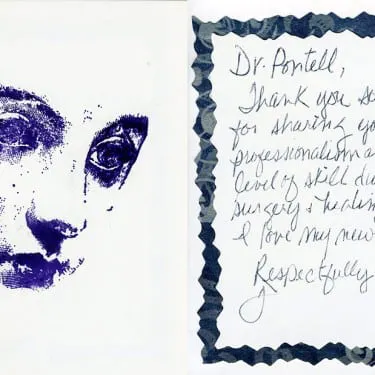 Dr. Pontell,
Thank you s
for sharing yo
professionalism a
level of skill du
surgery & healin
I love my new
Respectfully